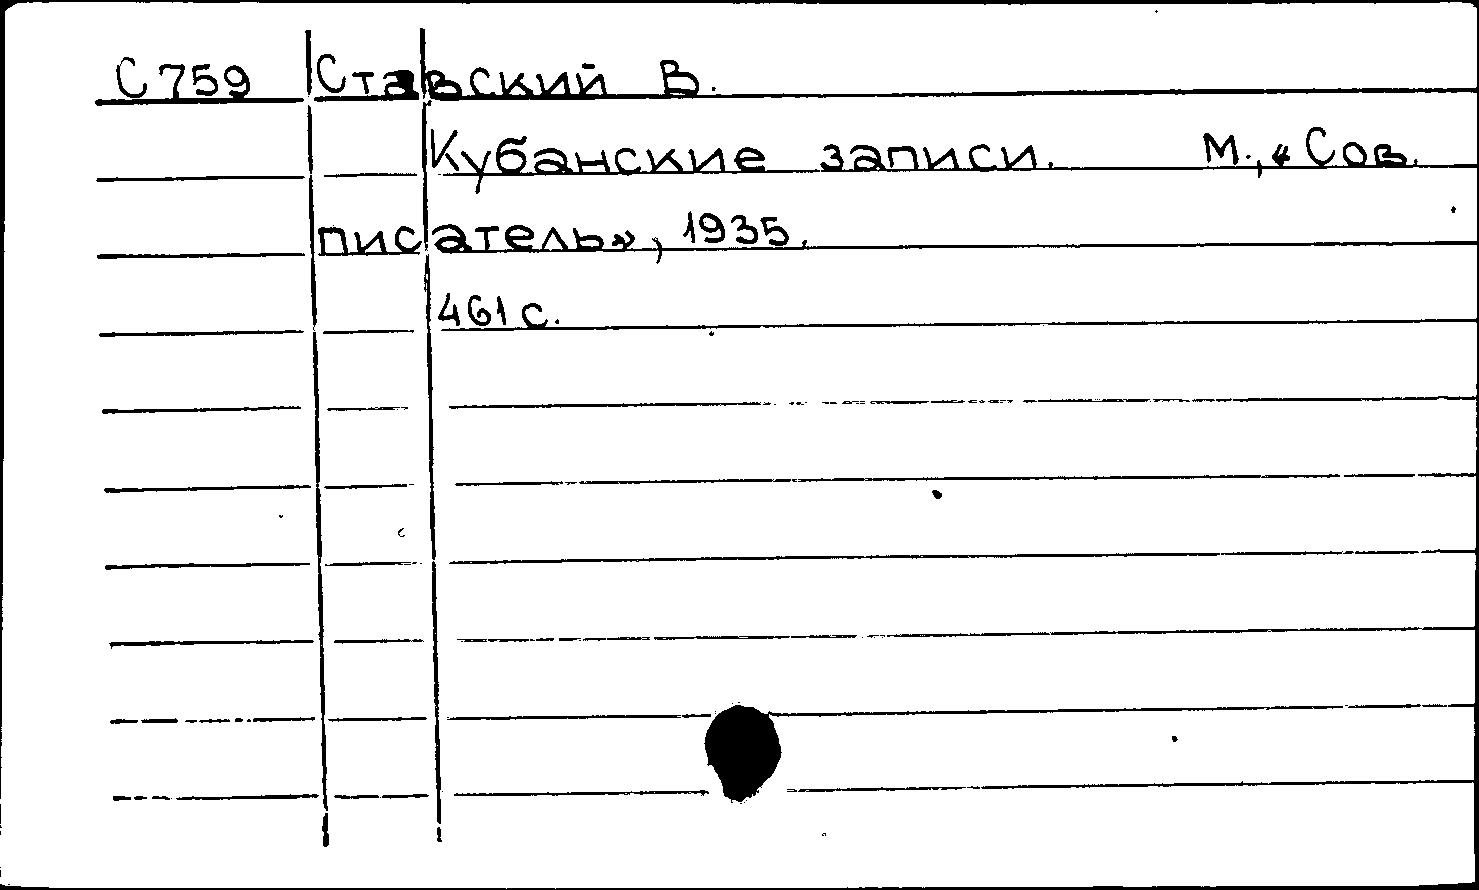 С759 Ставский В.
Кубанские записи. М., «Сов.
писатель», 1935.
461 с.